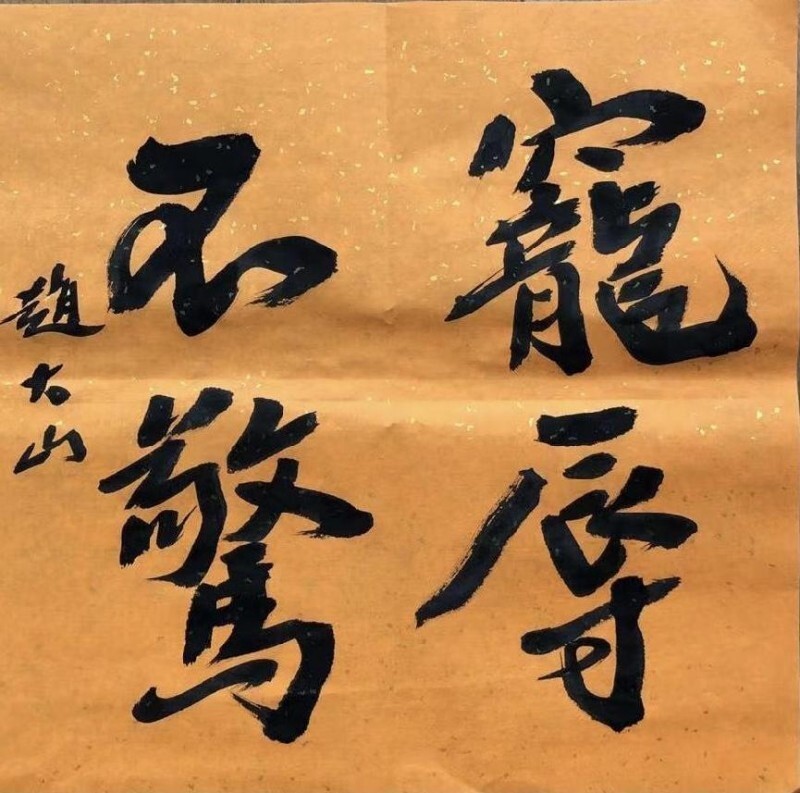 寵辱
不驚
趙大山